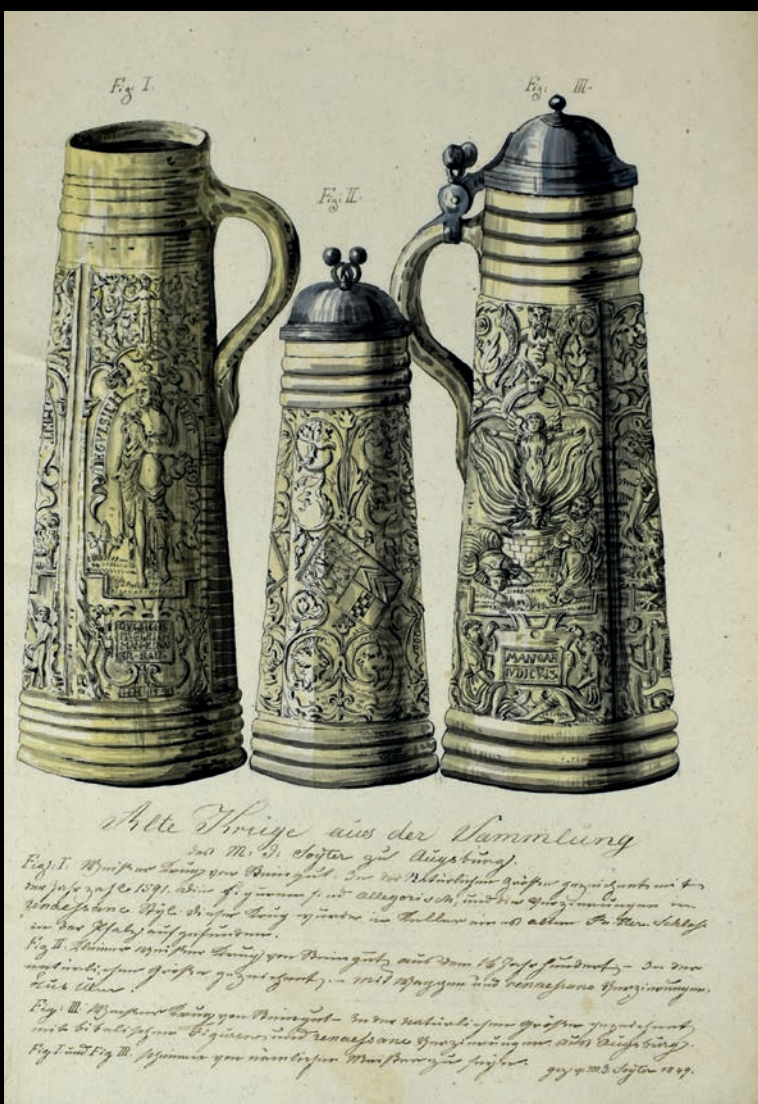 Fig. I.
Fig: III.
Fig: II.
MANOAH
IVDICKS
Alte Krüge aus der Sammlung
des M. J. Soyter zu Augsburg.
Fig: I. Weißer Krug von Steingut. In der Natürlichen Größe gezeichnet mit
der Jahrzahl 1591. Die Figuren sind Allegorisch, und die Verzierungen im
renaessance Styl. Dieser Krug wurde im Keller eines alten Schloß
in der Pfalz aufgefunden.
Fig II. Kleiner weißer Krug von Steingut aus dem 16 Jahrhundert, - In der
natürlichen Größe gezeichnet, - mit Wappen und renaessance Verzierungen.
Aus Ulm.
Fig: III. Weißer Krug von Steingut - In der Natürlichen Größe gezeichnet
mit bibelischen Figuren, und renaessance Verzierungen. Aus Augsburg.
Fig I. und Fig III. scheinen von nemlichen Meister zu seyn.
gez. v. M. J. Soyter 1849.